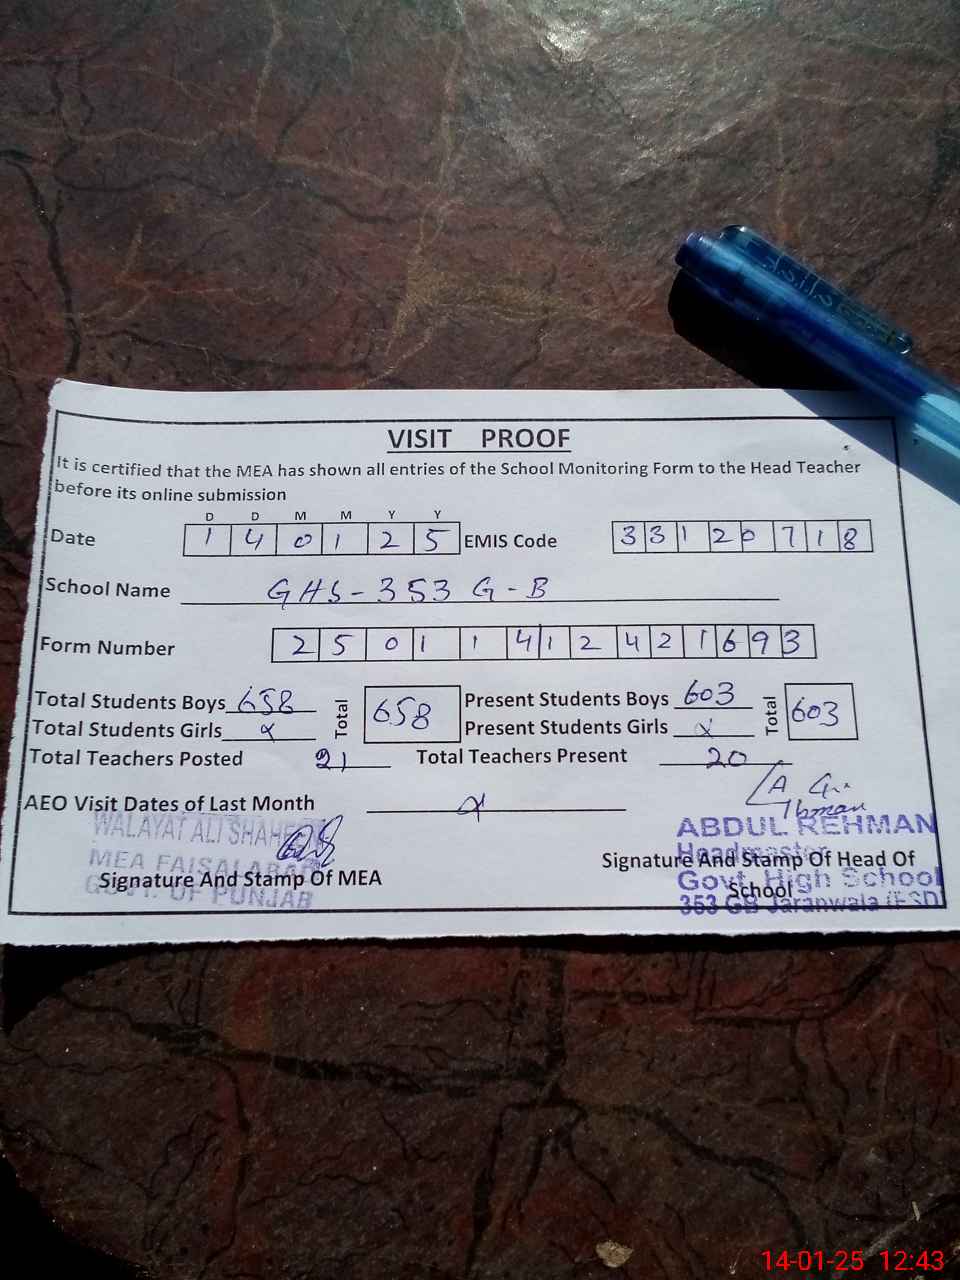 VISIT PROOF
It is certified that the MEA has shown all entries of the School Monitoring Form to the Head Teacher
before its online submission
D D M M Y Y
Date 1 4 0 1 2 5 EMIS Code 3 3 1 2 0 7 1 8
School Name GHS-353 G-B
Form Number 2 5 0 1 1 4 1 2 4 2 1 6 9 3
Total Students Boys 658 Total 658 Present Students Boys 603 Total 603
Total Students Girls x Present Students Girls x
Total Teachers Posted 21 Total Teachers Present 20
AEO Visit Dates of Last Month x
WALAYAT ALI SHAHEED
MEA FAISALABAD
GOVT. OF PUNJAB
Signature And Stamp Of MEA
ABDUL REHMAN
Headmaster
Signature And Stamp Of Head Of
Govt. High School
School
353 GB Jaranwala (FSD)
14-01-25 12:43